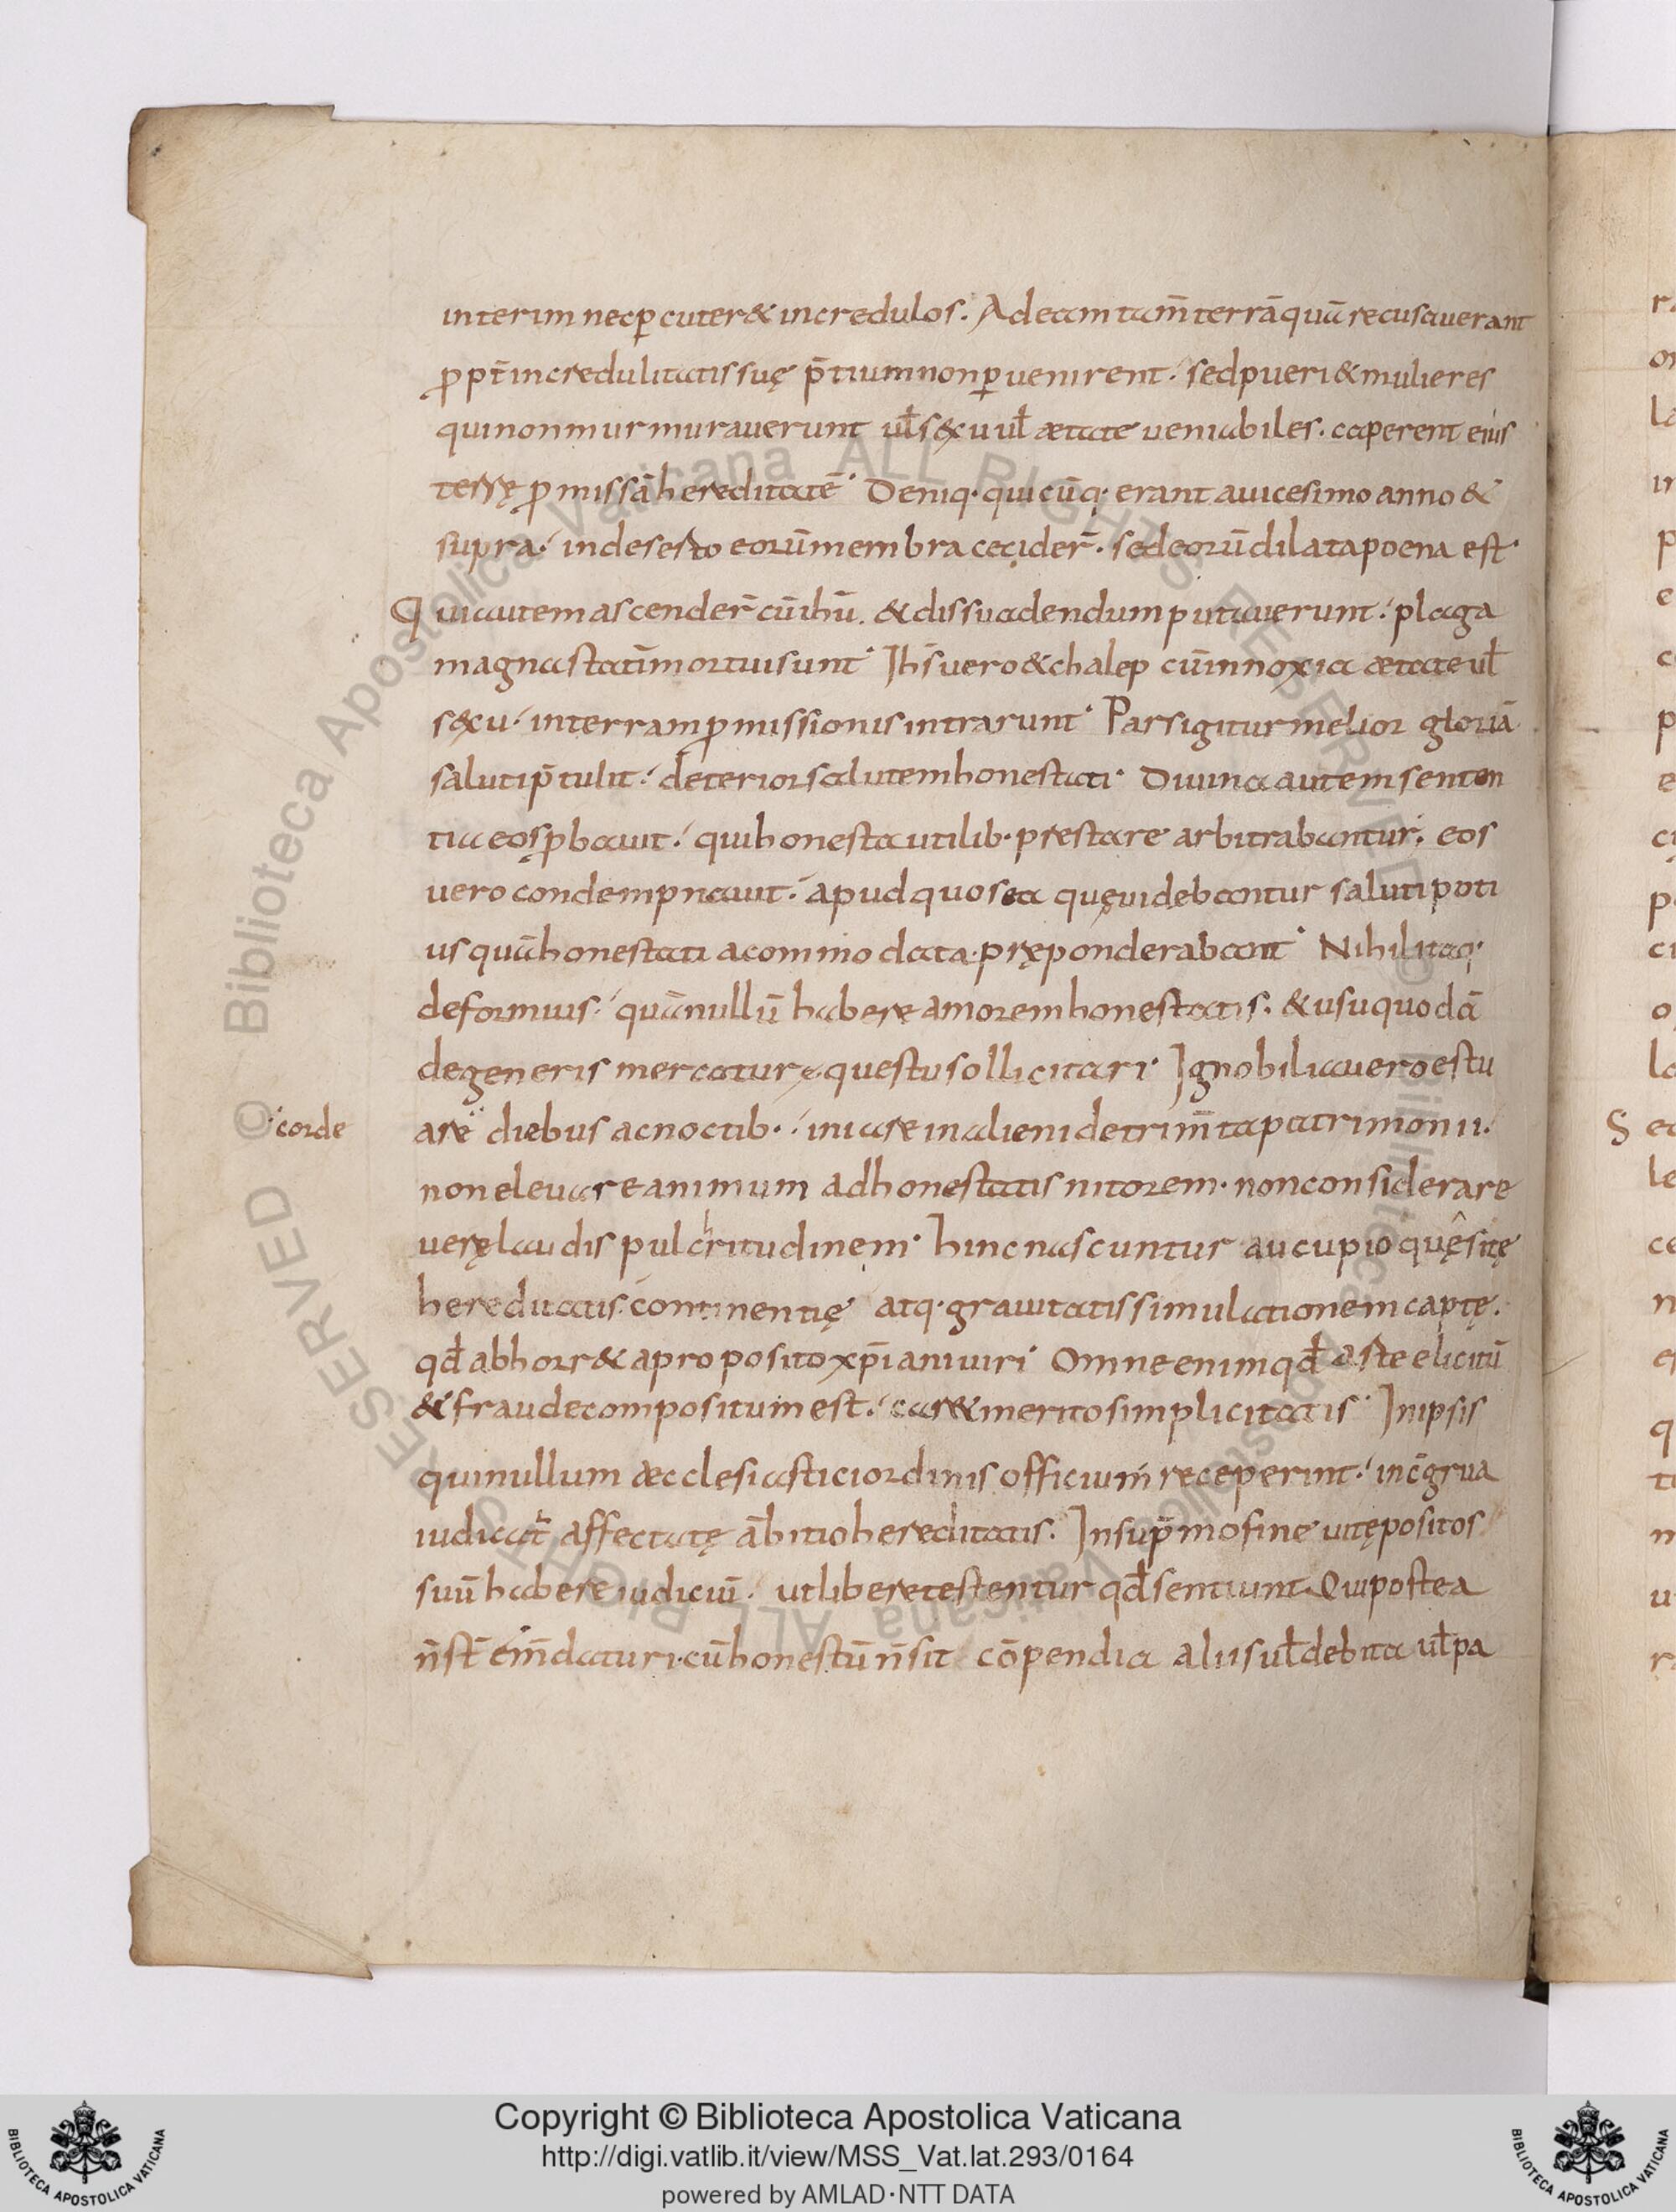 interim nec ꝑcuter& incredulos. Ad eam tam̄ terrā quā recusauerant
ꝓpt̄ incredulitatis suę p̄tium non ꝑuenirent. sed pueri & mulieres
qui non murmurauerunt ul̄ s&xu ul̄ ætate ueniabiles. caperent eius
terrę ꝓmissā hereditatē. Deniq· quicūq· erant a uicesimo anno &
supra. in deserto eorū membra cecider̄. sed eorū dilata poena est.
Qui autem ascender̄ cū ihū. & dissuadendum putauerunt. plaga
magna statī mortui sunt. Ihs̄ uero & chalep cū innoxia ætate ul̄
s&xu. in terram ꝓmissionis intrarunt. Pars igitur melior gloriā
saluti p̄tulit. deterior salutem honestati. Diuina autem senten
tia eos ꝓbauit. qui honesta utilib· prestare arbitrabantur. eos
uero condempnauit. apud quos ea quę uidebantur saluti poti
us quā honestati acommodata. pręponderabant. Nihil itaq·
deformius. quā nullū habere amorem honestatis. & usu quodā
degeneris mercaturę. questu sollicitari. Ignobilia uero estu
corde
are diebus ac noctib·. iniare in alieni detrim̄ta patrimonii.
non eleuare animum ad honestatis nitorem. non considerare
uerę laudis pulchritudinem. hinc nascuntur aucupio quęsitę
hereditatis. continentię atq· grauitatis simulationem captę.
qd̄ abhorr& a proposito xp̄iani uiri. Omne enim qd̄ aste elicitū
& fraude compositum est. car& merito simplicitatis. In ipsis
qui nullum æcclesiastici ordinis officium receperint. incōgrua
iudicat̄ affectatę ābitio hereditatis. In sup̄mo fine uitę positos
suū habere iudiciū. ut libere testentur qd̄ sentiunt. Qui postea
n̄ st̄ em̄daturi. cū honestū n̄ sit cōpendia aliis ul̄ debita ul̄ pa
Copyright © Biblioteca Apostolica Vaticana
http://digi.vatlib.it/view/MSS_Vat.lat.293/0164
powered by AMLAD·NTT DATA